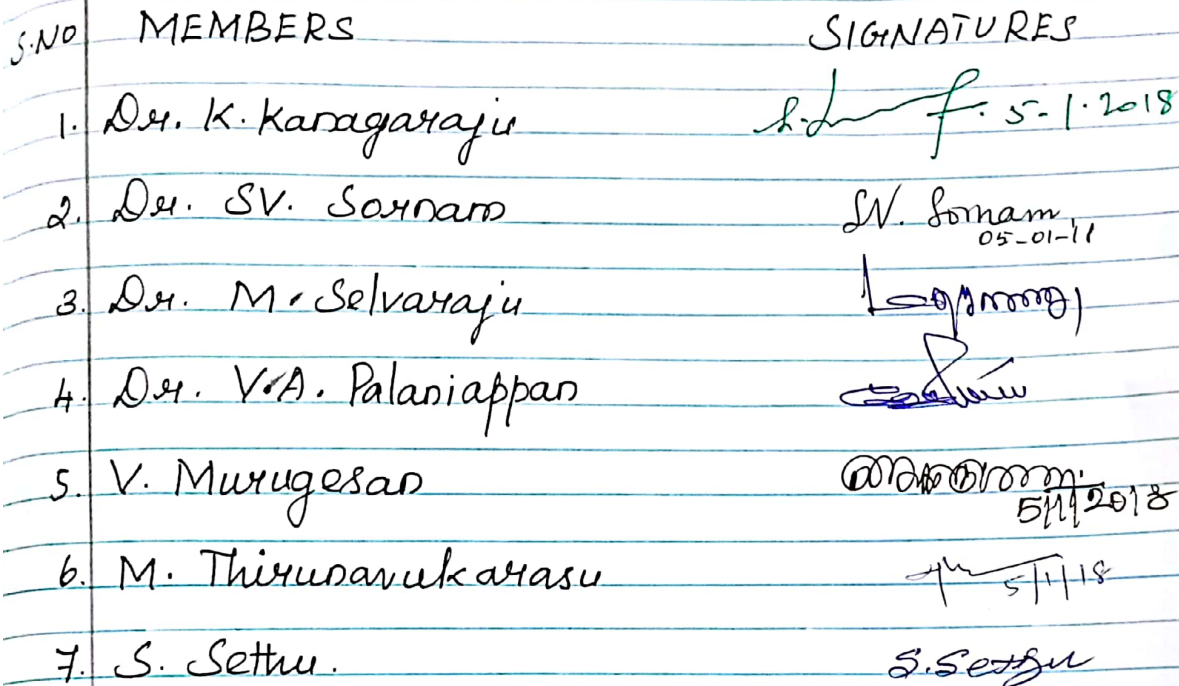 S.NO MEMBERS SIGNATURES
1. Dr. K. Kanagaraju 5-1-2018
2. Dr. SV. Sornam SV. Sornam
05-01-18
3. Dr. M. Selvaraju
4. Dr. V.A. Palaniappan
5. V. Murugesan
5/1/2018
6. M. Thirunavukarasu 5/1/18
7. S. Sethu. S. Sethu